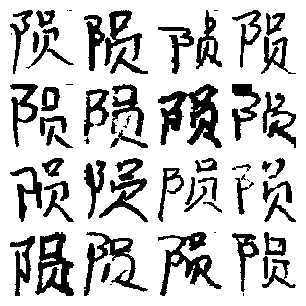 陨陨陨陨
陨陨陨陨
陨陨陨陨
陨陨陨陨